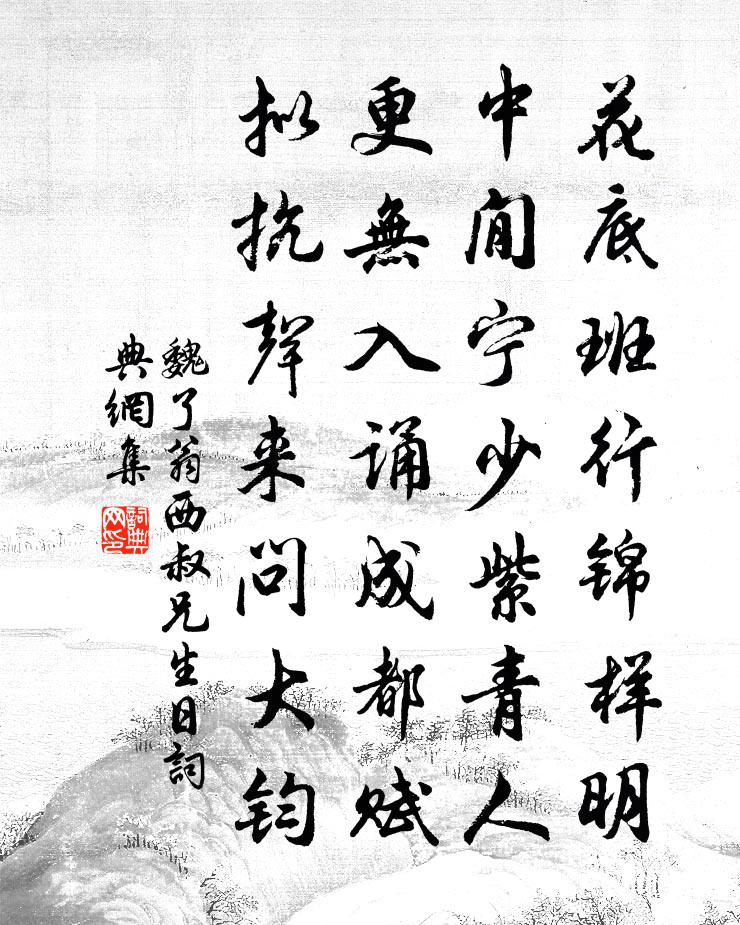 花底班行锦样明
中间宁少紫青人
更無入诵成都赋
拟抗聲来问大钧
魏了翁西叔兄生日詞
典網集
詞典網印